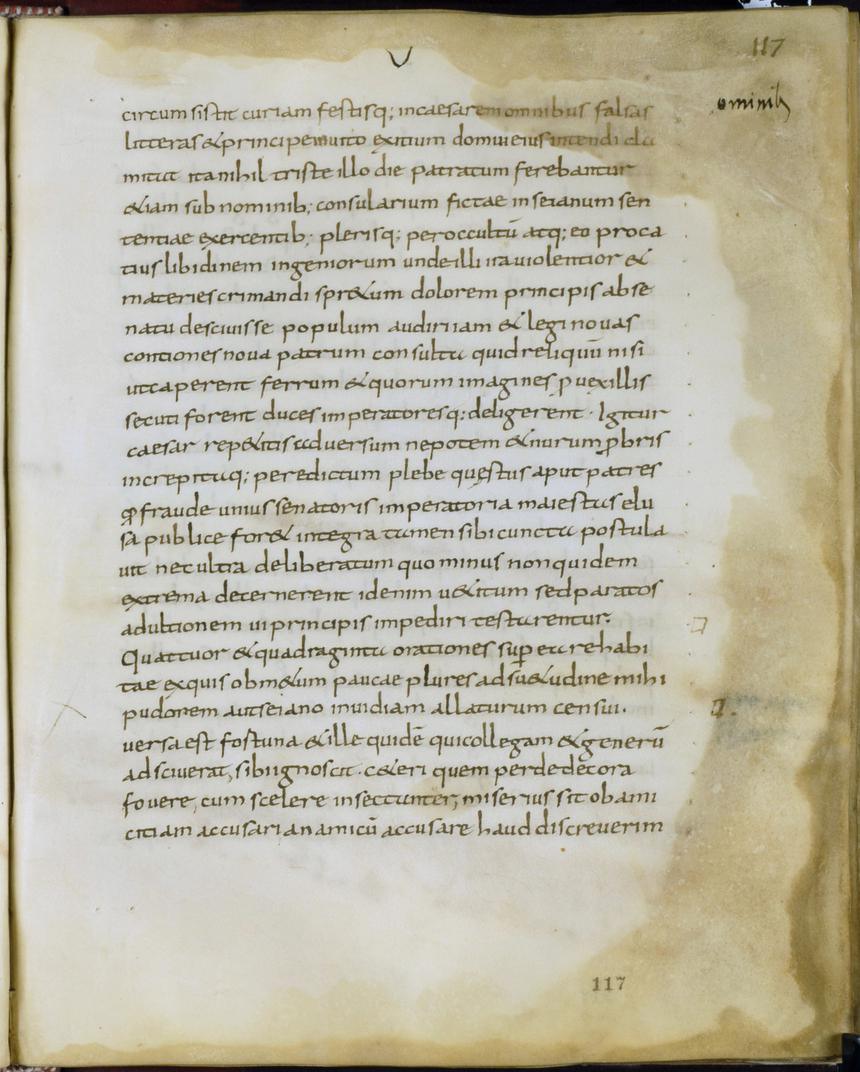 117
ominib;
circum sistit curiam festisq; incaesarem omnibus falsas
litteras & principe inuito exitium domui eius intendi cla
mitat ita nihil triste illo die patratum ferebantur
&iam sub nominib; consularium fictae inseianum sen
tentiae exercentib; plerisq; peroccultū atq; eo proca
tius libidinem ingeniorum undeilli ira violentior &
materies crimandi spr&um dolorem principis abse
natu descivisse populum audiri iam & legi novas
contiones nova patrum consulta quid reliquū nisi
utcaperent ferrum & quorum imagines p̄ vexillis
secuti forent duces imperatoresq; deligerent · Igitur
caesar rep&itis adversum nepotem & nurum p̄bris
increpitaq; peredictum plebe quęstus aput patres
qp̄ fraude unius senatoris imperatoria maiestas elu
sa publice for& integra tamen sibi cuncta postula
vit nec ultra deliberatum quo minus non quidem
extrema decernerent id enim v&itum sed paratos
adultionem vi principis impediri testarentur.
Quattuor & quadraginta orationes sup̄ ea re habi
tae exquis ob m&um paucae plures adsu&udine mihi
pudorem aut seiano invidiam allaturum censui.
versa est fostuna & ille quidē qui collegam & generū
adsciverat, sibi ignoscit · c&eri quem perdedecora
fovere, cum scelere insectanter, miserius sit ob ami
citiam accusari an amicū accusare haud discreverim
117